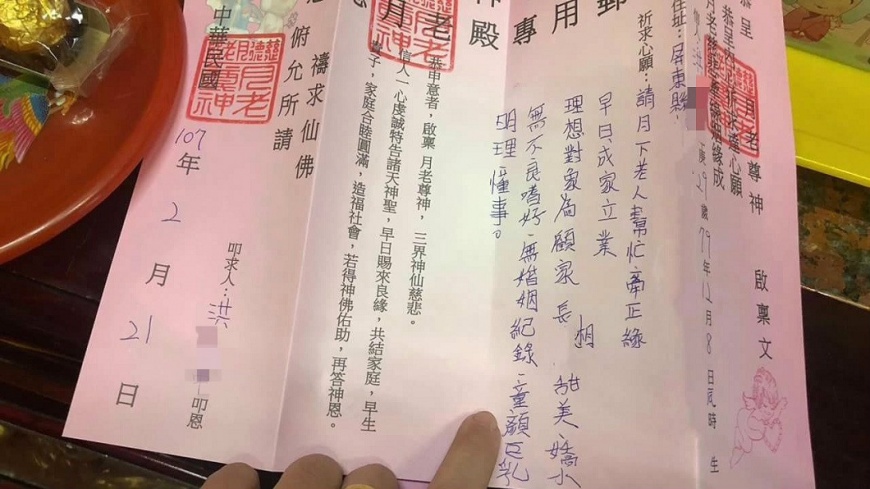 恭呈 月老尊神 啟稟文
恭呈
29歲79年12月8日 時生
住址：屏東縣
祈求心願：請月下老人幫忙牽正緣
早日成家立業
理想對象為顧家 長相甜美、嬌小
無不良嗜好、無婚姻紀錄、童顏巨乳
明理懂事。
專用郵
神殿
恭申意者，啟稟 月老尊神，三界神仙慈悲。
信人一心虔誠特告諸天神聖，早日賜來良緣，共結家庭，早生
貴子，家庭合睦圓滿，造福社會，若得神佛佑助，再答神恩。
月老
禱求仙佛
俯允所請
叩求人：洪 叩恩
中華民國107年2月21日